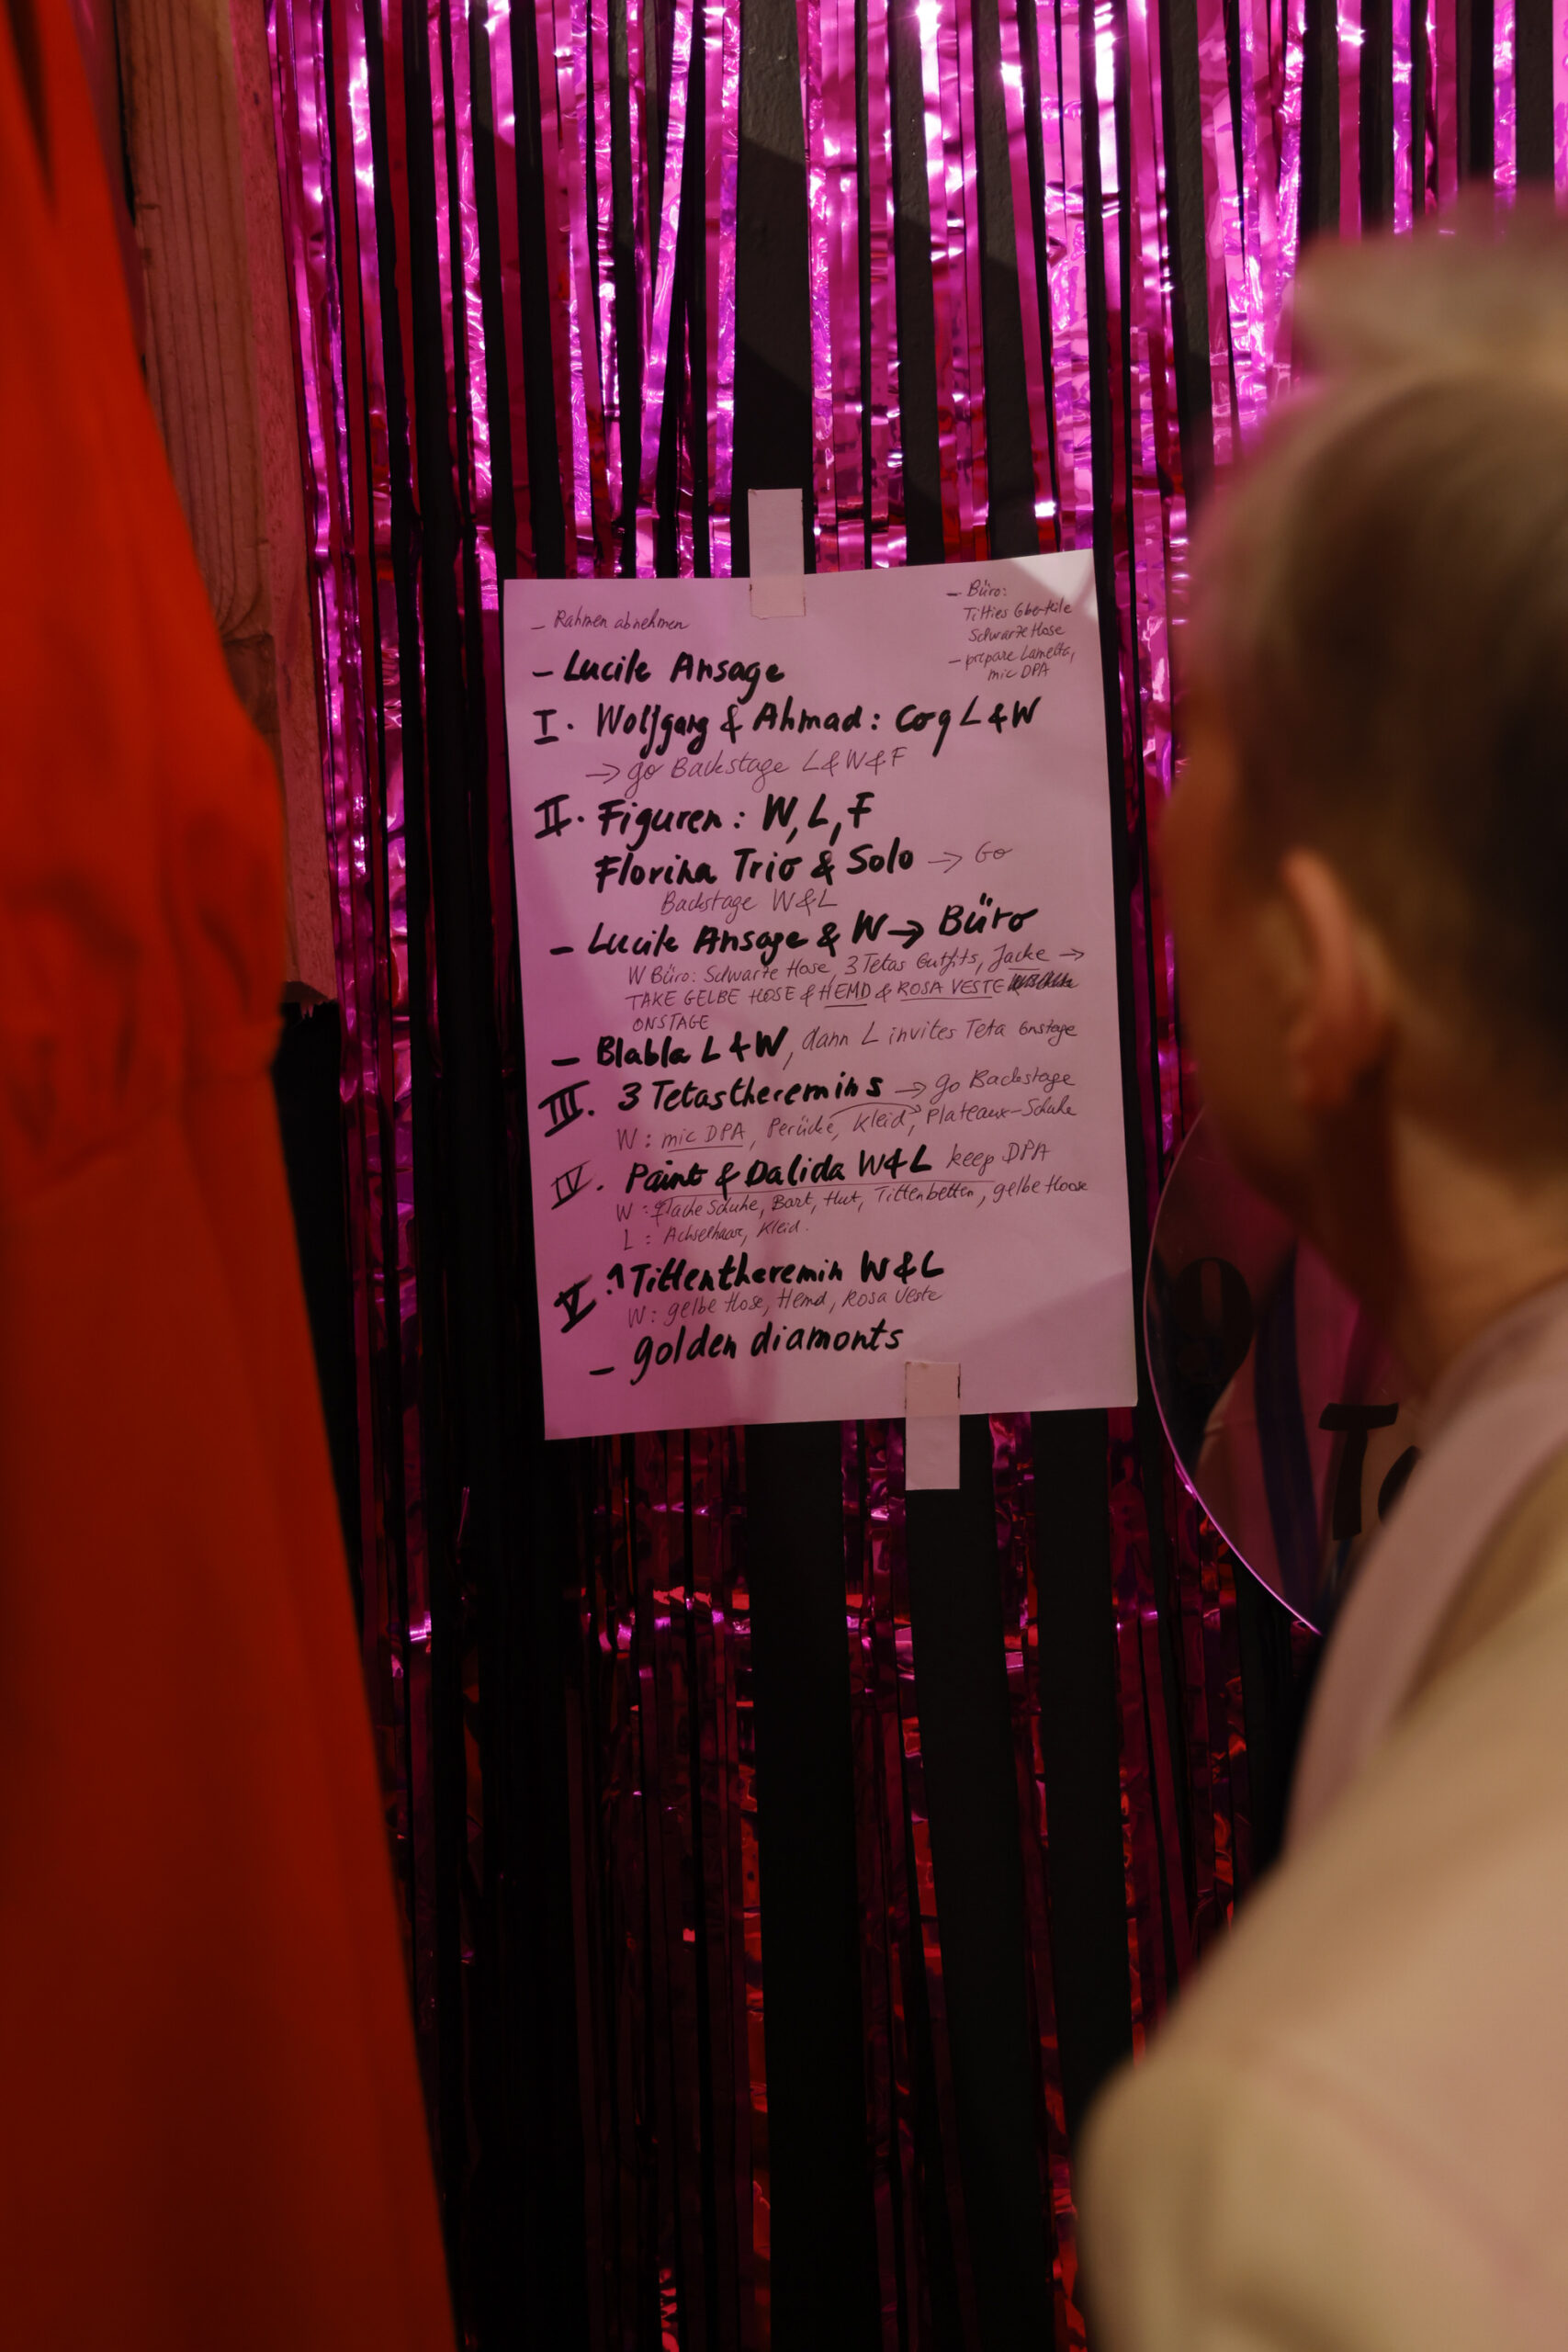 – Rahmen abnehmen
– Büro:
Titties Oberteile
Schwarze Hose
– prepare Lametta,
mic DPA
– Lucile Ansage
I. Wolfgang & Ahmad: Coq L & W
→ go Backstage L & W & F
II. Figuren: W, L, F
Florina Trio & Solo → Go
Backstage W & L
– Lucile Ansage & W → Büro
W Büro: Schwarze Hose, 3 Tetas Outfits, Jacke →
TAKE GELBE HOSE & HEMD & ROSA VESTE
ONSTAGE
– Blabla L + W, dann L invites Teta onstage
III. 3 Tetastheremins → go Backstage
W: mic DPA, Perücke, Kleid, Plateaux-Schuhe
IV. Paint & Dalida W & L keep DPA
W: flache Schuhe, Bart, Hut, Tittenbetten, gelbe Hose
L: Achselhaar, Kleid.
V. 1 Tittentheremin W & L
W: gelbe Hose, Hemd, Rosa Veste
– golden diamonts